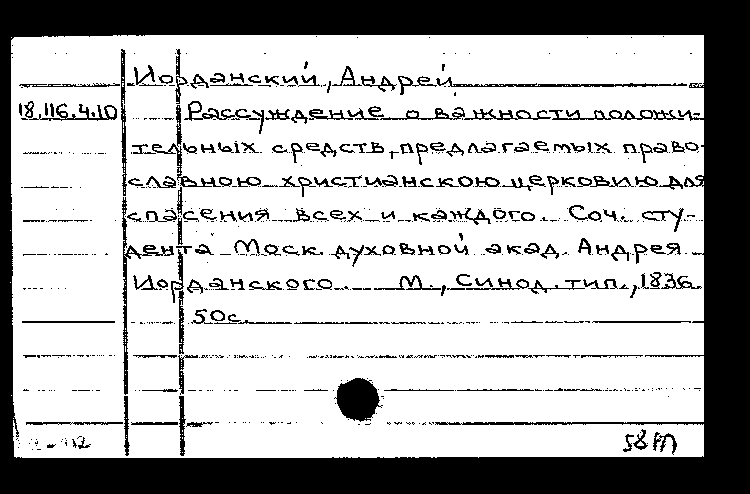 Иорданский, Андрей
18.116.4.10 Рассуждение о важности положи-
тельных средств, предлагаемых право-
славною христианскою церковию для
спасения всех и каждого. Соч. сту-
дента Моск. духовной акад. Андрея
Иорданского. М., Синод. тип., 1836.
50с.
58